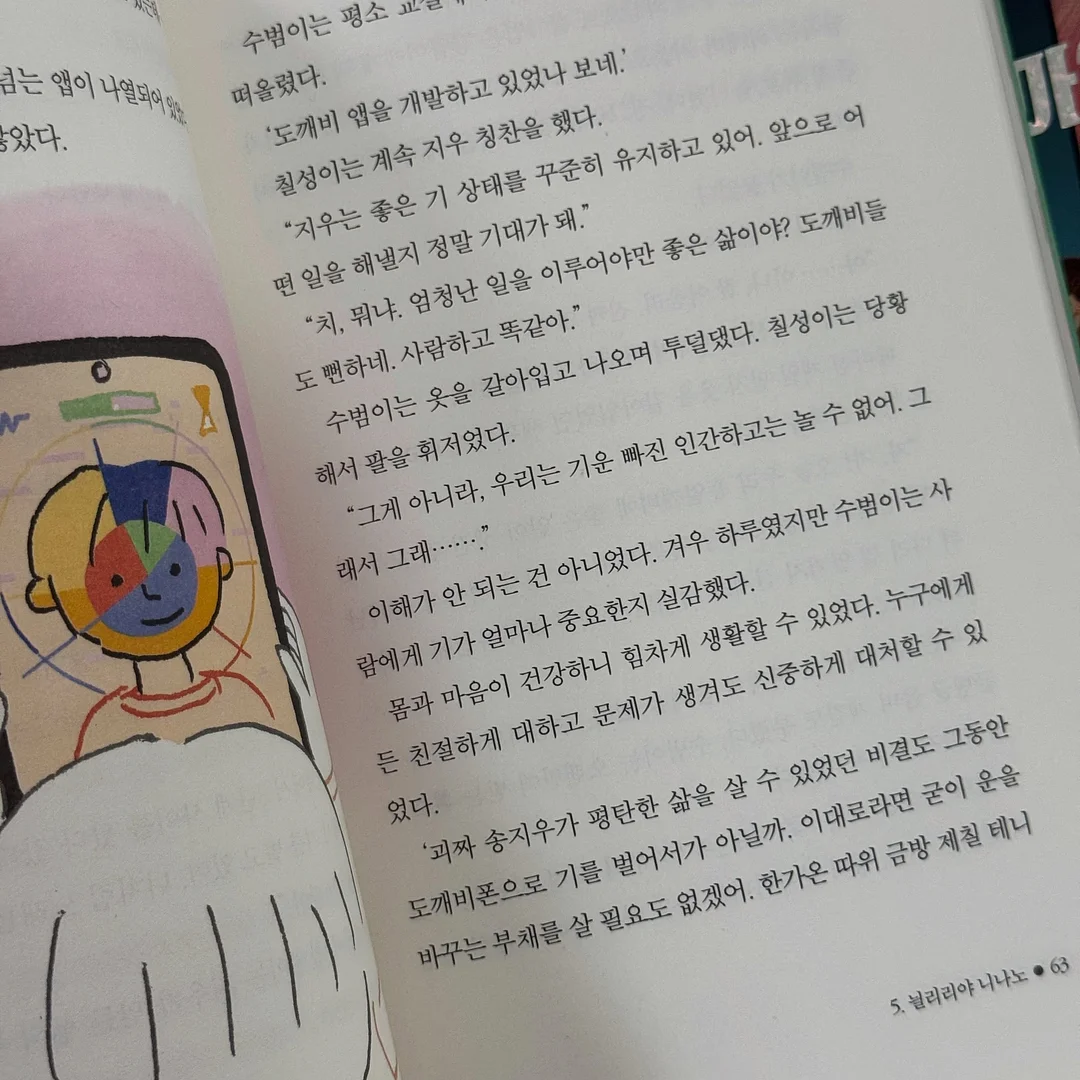 넘는 앱이 나열되어
않았다.
수범이는 평소
떠올렸다.
‘도깨비 앱을 개발하고 있었나 보네.’
칠성이는 계속 지우 칭찬을 했다.
“지우는 좋은 기 상태를 꾸준히 유지하고 있어. 앞으로 어
떤 일을 해낼지 정말 기대가 돼.”
“치, 뭐냐. 엄청난 일을 이루어야만 좋은 삶이야? 도깨비들
도 뻔하네. 사람하고 똑같아.”
수범이는 옷을 갈아입고 나오며 투덜댔다. 칠성이는 당황
해서 팔을 휘저었다.
“그게 아니라, 우리는 기운 빠진 인간하고는 놀 수 없어. 그
래서 그래…….”
이해가 안 되는 건 아니었다. 겨우 하루였지만 수범이는 사
람에게 기가 얼마나 중요한지 실감했다.
몸과 마음이 건강하니 힘차게 생활할 수 있었다. 누구에게
든 친절하게 대하고 문제가 생겨도 신중하게 대처할 수 있
었다.
‘괴짜 송지우가 평탄한 삶을 살 수 있었던 비결도 그동안
도깨비폰으로 기를 벌어서가 아닐까. 이대로라면 굳이 운을
바꾸는 부채를 살 필요도 없겠어. 한가온 따위 금방 제칠 테니
5. 늴리리야 니나노 ● 63